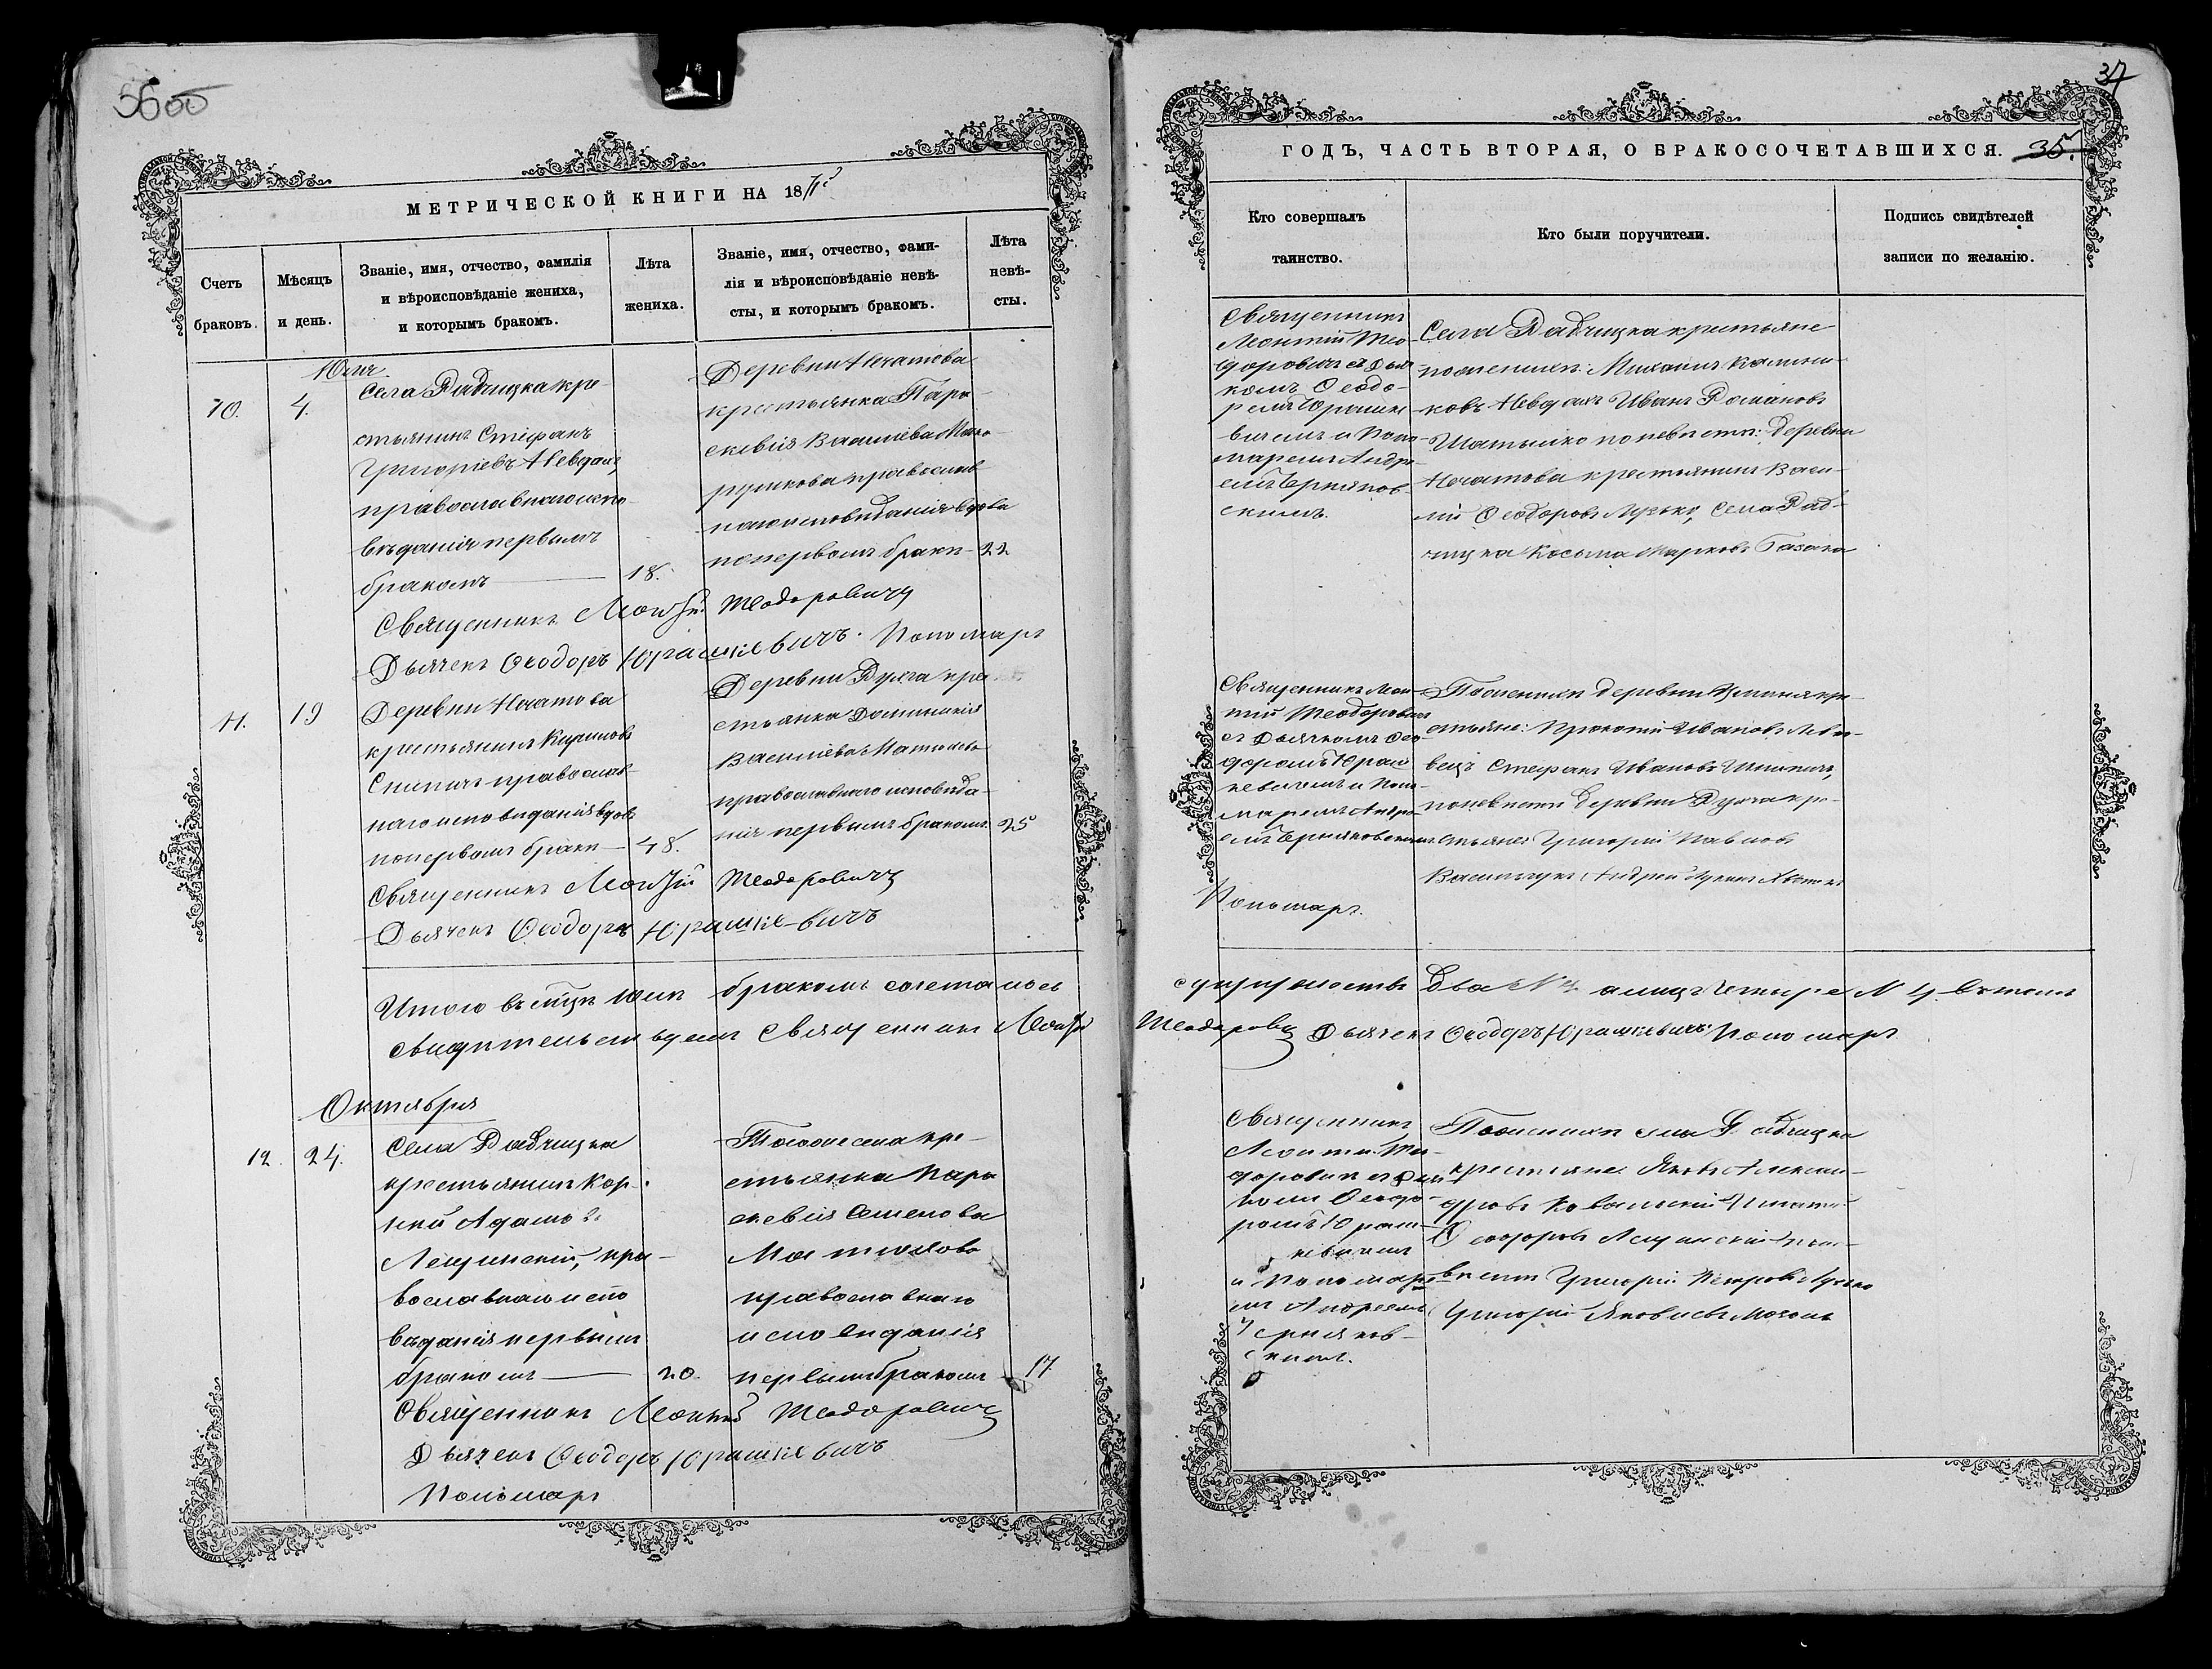 56об
МЕТРИЧЕСКОЙ КНИГИ НА 18
Счетъ
браковъ.
Мѣсяцъ
и день.
Званіе, имя, отчество, фамилія
и вѣроисповѣданіе жениха,
и которымъ бракомъ.
Лѣта
жениха.
Званіе, имя, отчество, фами-
лія и вѣроисповѣданіе невѣ-
сты, и которымъ бракомъ.
Лѣта
невѣ-
сты.
10.
Юль
4.
Села Радчицка кре-
стьянинъ Стефанъ
Григоріевъ Невдахъ,
православнаго испо-
вѣданія первымъ
бракомъ
18.
Деревни Ничатова
крестьянка Пара-
скевія Василіева
православ-
наго исповѣданія вдова
по первомъ бракѣ
22
Священникъ Леонтій Теодоровичъ
Дьячекъ Ѳеодоръ Юрашкевичъ. Пономарь
11.
19
Деревни Ничатова
крестьянинъ
православ-
наго исповѣданія вдовъ
по первомъ бракѣ
48.
Деревни кре-
стьянка Доминикія
Василіева
православнаго исповѣда-
нія первымъ бракомъ.
25
Священникъ Леонтій Теодоровичъ
Дьячекъ Ѳеодоръ Юрашкевичъ
Итого въ мцѣ Юлѣ бракомъ сочеталось
свидѣтельствуемъ Священникъ Леонтій
Октября
12.
24.
Села Радчицка
крестьянинъ Кор-
ній Адамовъ
Лещинскій, пра-
вославнаго испо
вѣданія первымъ
бракомъ
20.
Тогоже села кре-
стьянка Пара
скевія Семенова
православнаго
исповѣданія
первымъ бракомъ
17
Священникъ Леонтій Теодоровичъ
Дьячекъ Ѳеодоръ Юрашкевичъ
Пономарь
37
ГОДЪ, ЧАСТЬ ВТОРАЯ, О БРАКОСОЧЕТАВШИХСЯ. 35.
Кто совершалъ
таинство.
Кто были поручители.
Подпись свидѣтелей
записи по желанію.
Священникъ
Леонтій Тео-
доровичъ съ Дьяч
комъ Ѳеодо-
ромъ Юрашке
вичемъ и Поно-
маремъ Андре-
емъ Черняков-
скимъ.
Села Радчицка крестьяне
по женихѣ: Михаилъ Калини-
ковъ Невдахъ Иванъ Романовъ
по невѣстѣ: Деревни
Ничатова крестьянинъ Васи-
лій Ѳеодоровъ Лузько, Села Рад-
чицка Косьма Марковъ
Священникъ Леон-
тій Теодоровичъ
съ Дьячкомъ Ѳео-
доромъ Юраш
кевичемъ и Поно-
маремъ Андре-
емъ Черняковскимъ.
По женихѣ деревни кре-
стьяне: Прокопій Ивановъ
Стефанъ Ивановъ
по невѣстѣ Деревни кре-
стьяне Григорій Павловъ
Андрей
Пономарь.
супружествъ Два № 2. а лицъ Четыре № 4.
Теодоровичъ Дьячекъ Ѳеодоръ Юрашкевичъ. Пономарь
Священникъ
Леонтій Тео-
доровичъ съ Дьяч-
комъ Ѳеодо-
ромъ Юраш-
кевичемъ
и Пономаре
мъ Андреемъ
Черняков-
скимъ.
По женихѣ села Радчицка
крестьяне Яковъ Алексан-
дровъ Ковальскій
Ѳеодоровъ Лещинскій по не-
вѣстѣ Григорій Петровъ Лузько
Григорій Яковлевъ